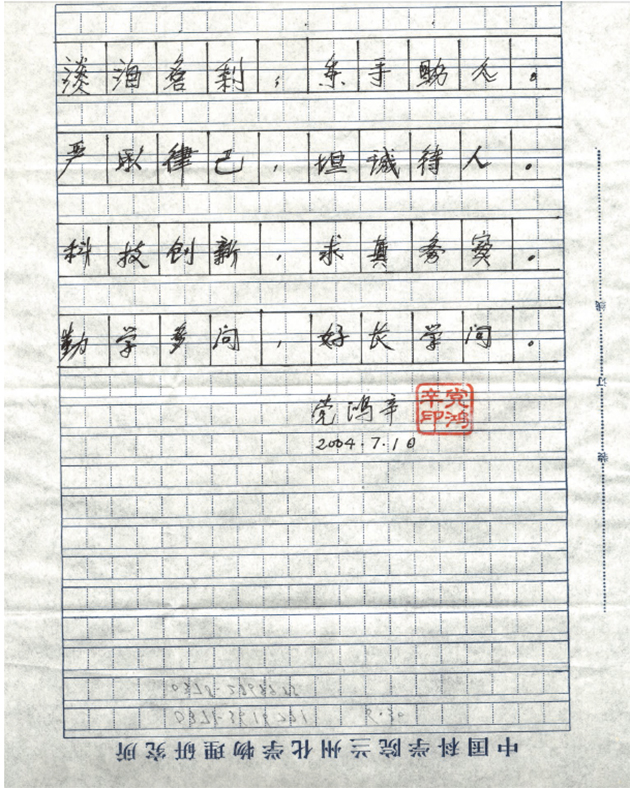 淡泊名利，乐于助人。
严以律己，坦诚待人。
科技创新，求真务实。
勤学多问，好长学问。
党鸿辛
党鸿辛印
2004.7.10
装订线
中国科学院兰州化学物理研究所